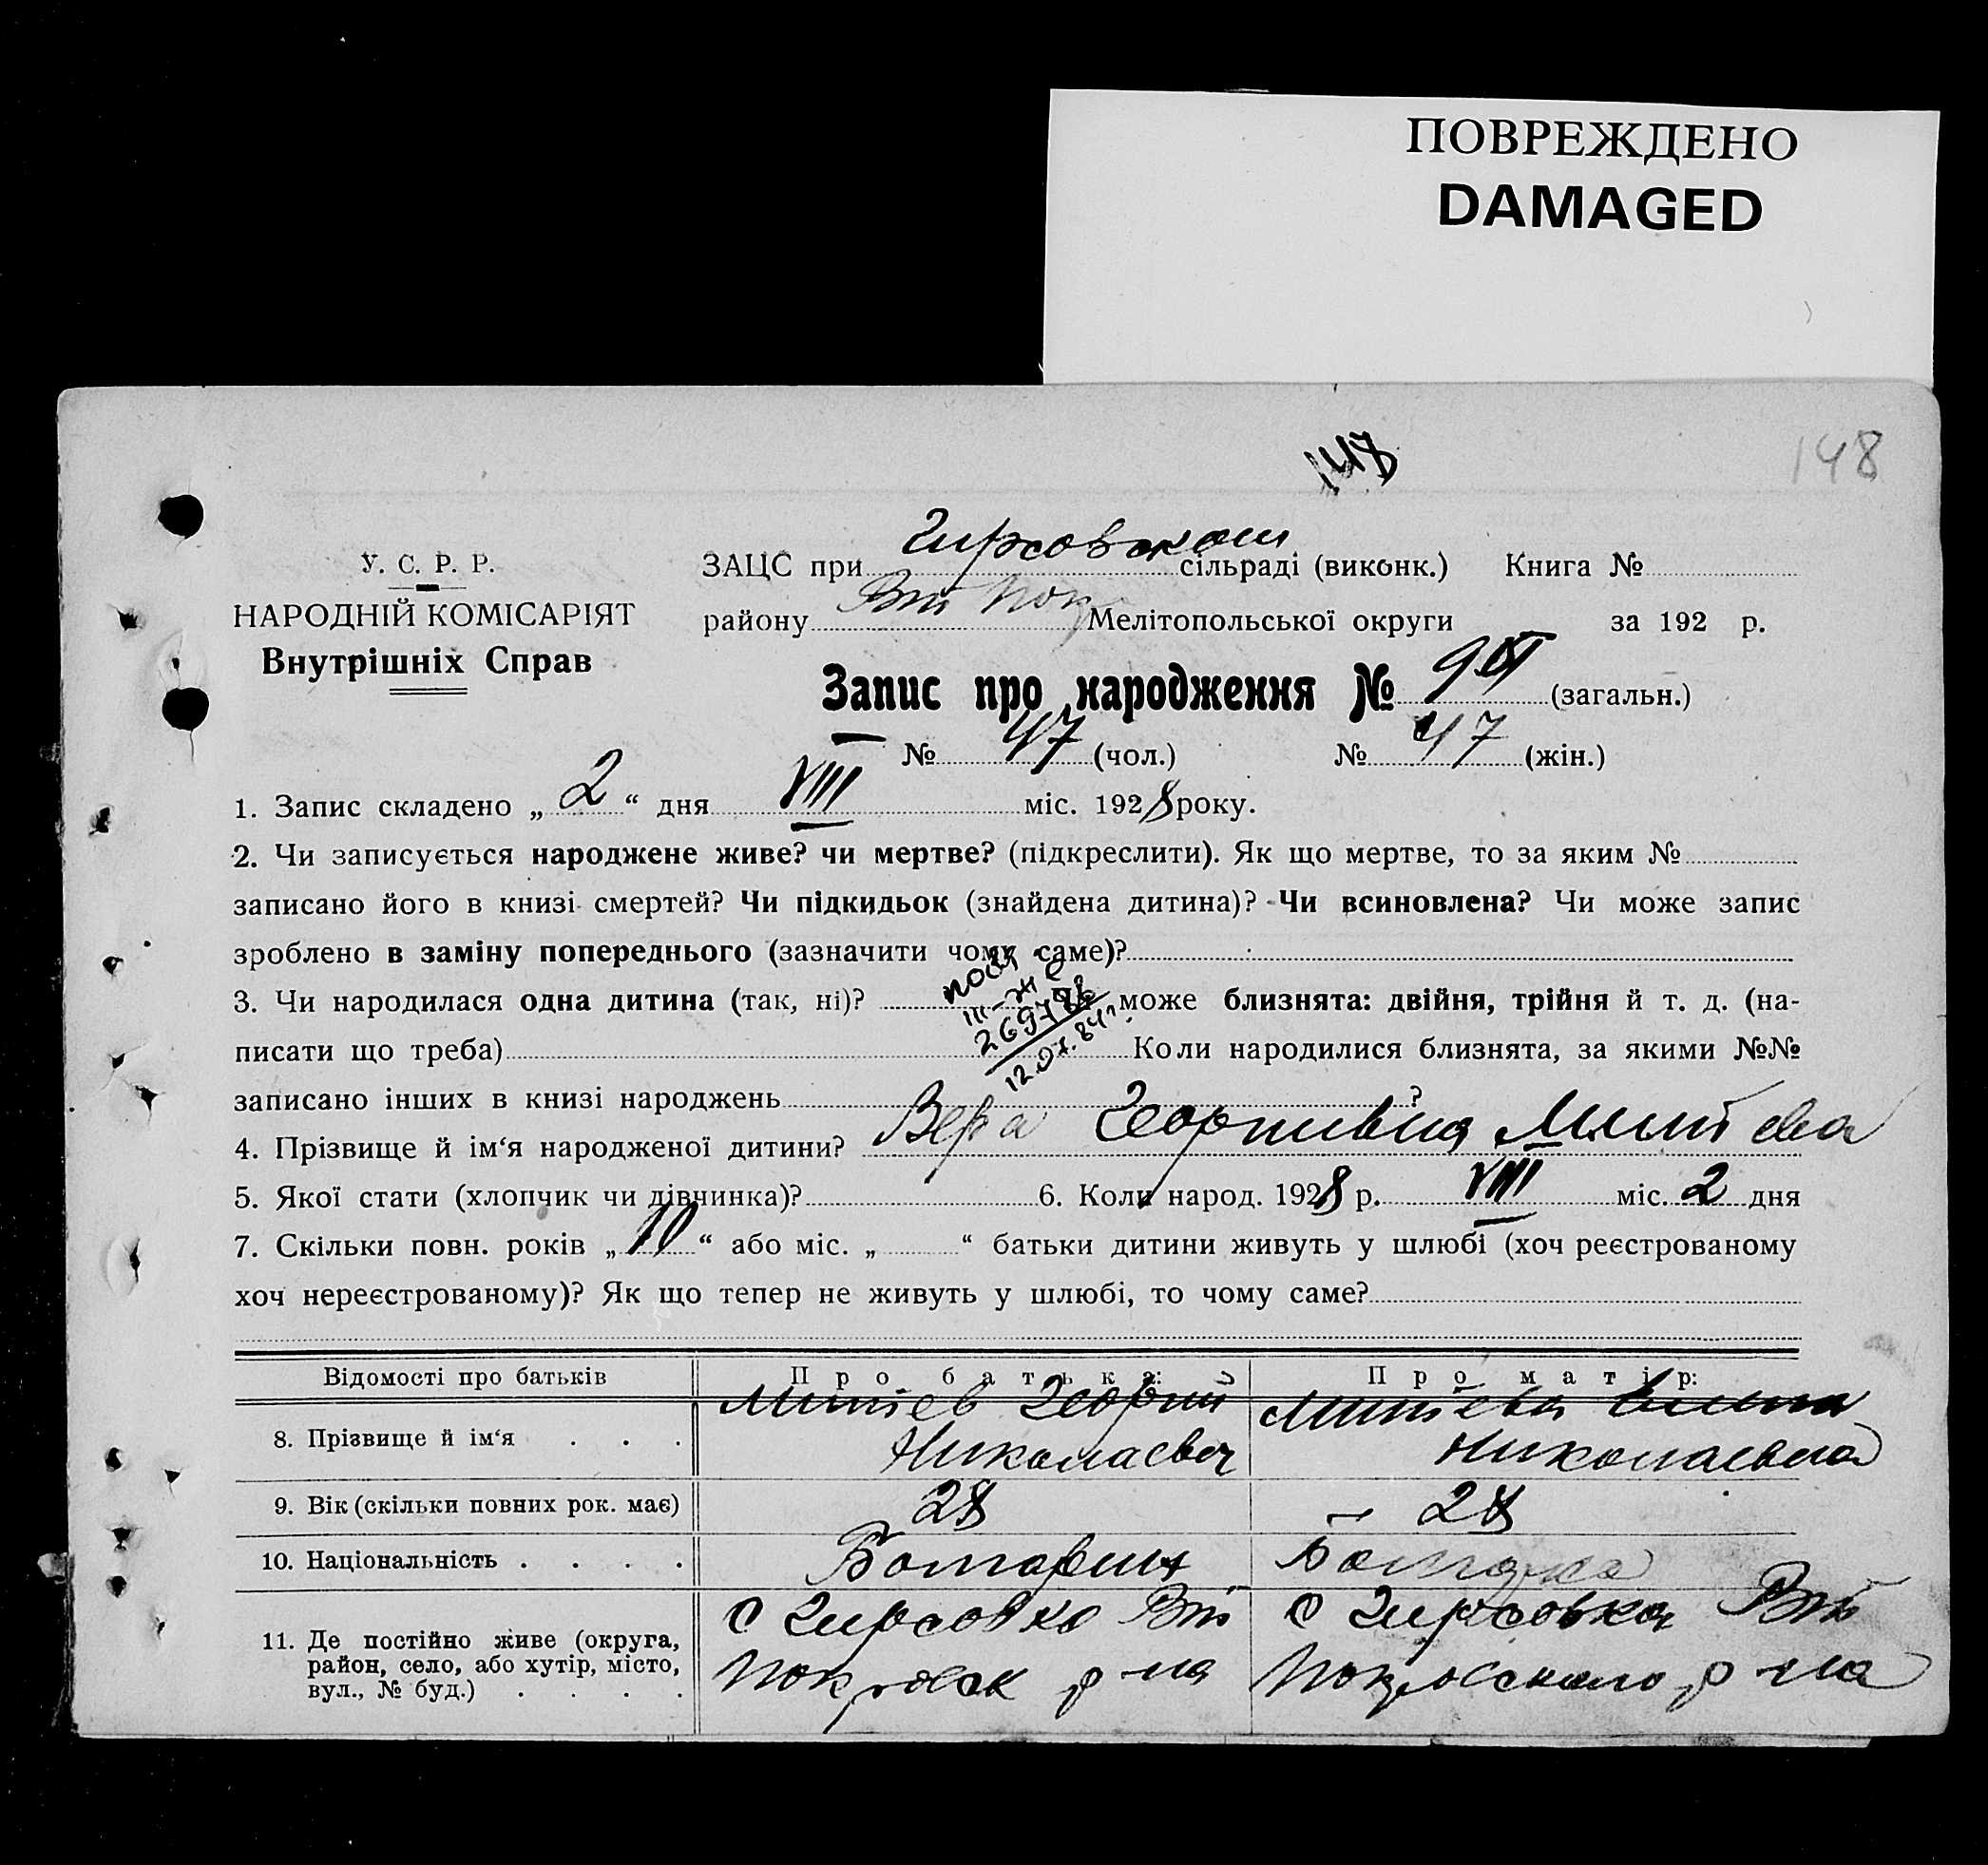 ПОВРЕЖДЕНО
DAMAGED
148
148
У. С. Р. Р.
НАРОДНІЙ КОМІСАРІЯТ
Внутрішніх Справ
ЗАЦС при Гирсовском сільраді (виконк.) Книга №
району Вт Покр Мелітопольської округи за 192 р.
Запис про народження № (загальн.)
№ 47 (чол.) № 47 (жін.)
1. Запис складено „ 2 “ дня VIII міс. 1928 року.
2. Чи записується народжене живе? чи мертве? (підкреслити). Як що мертве, то за яким №
записано його в книзі смертей? Чи підкидьок (знайдена дитина)? Чи всиновлена? Чи може запис
зроблено в заміну попереднього (зазначити чому саме)?
3. Чи народилася одна дитина (так, ні)? може близнята: двійня, трійня й т. д. (на-
писати що треба) Коли народилися близнята, за якими №№
записано інших в книзі народжень ?
4. Прізвище й ім‘я народженої дитини? Вера Георгиевна Митева
5. Якої стати (хлопчик чи дівчинка)? 6. Коли народ. 1928 р. VIII міс. 2 дня
7. Скільки повн. років „ 10 “ або міс. „ “ батьки дитини живуть у шлюбі (хоч реєстрованому
хоч нереєстрованому)? Як що тепер не живуть у шлюбі, то чому саме?
Відомості про батьків Про батька: Про матір:
8. Прізвище й ім‘я . . . Митев Георгий Митева Елена
Николаевич Николаевна
9. Вік (скільки повних рок. має) 28 28
10. Національність . . . . Болгарин Болгарка
11. Де постійно живе (округа, район, село, або хутір, місто, вул., № буд.) . . . . с Гирсовка Вт с Гирсовка Вт
Покровск р-на Покровского р-на